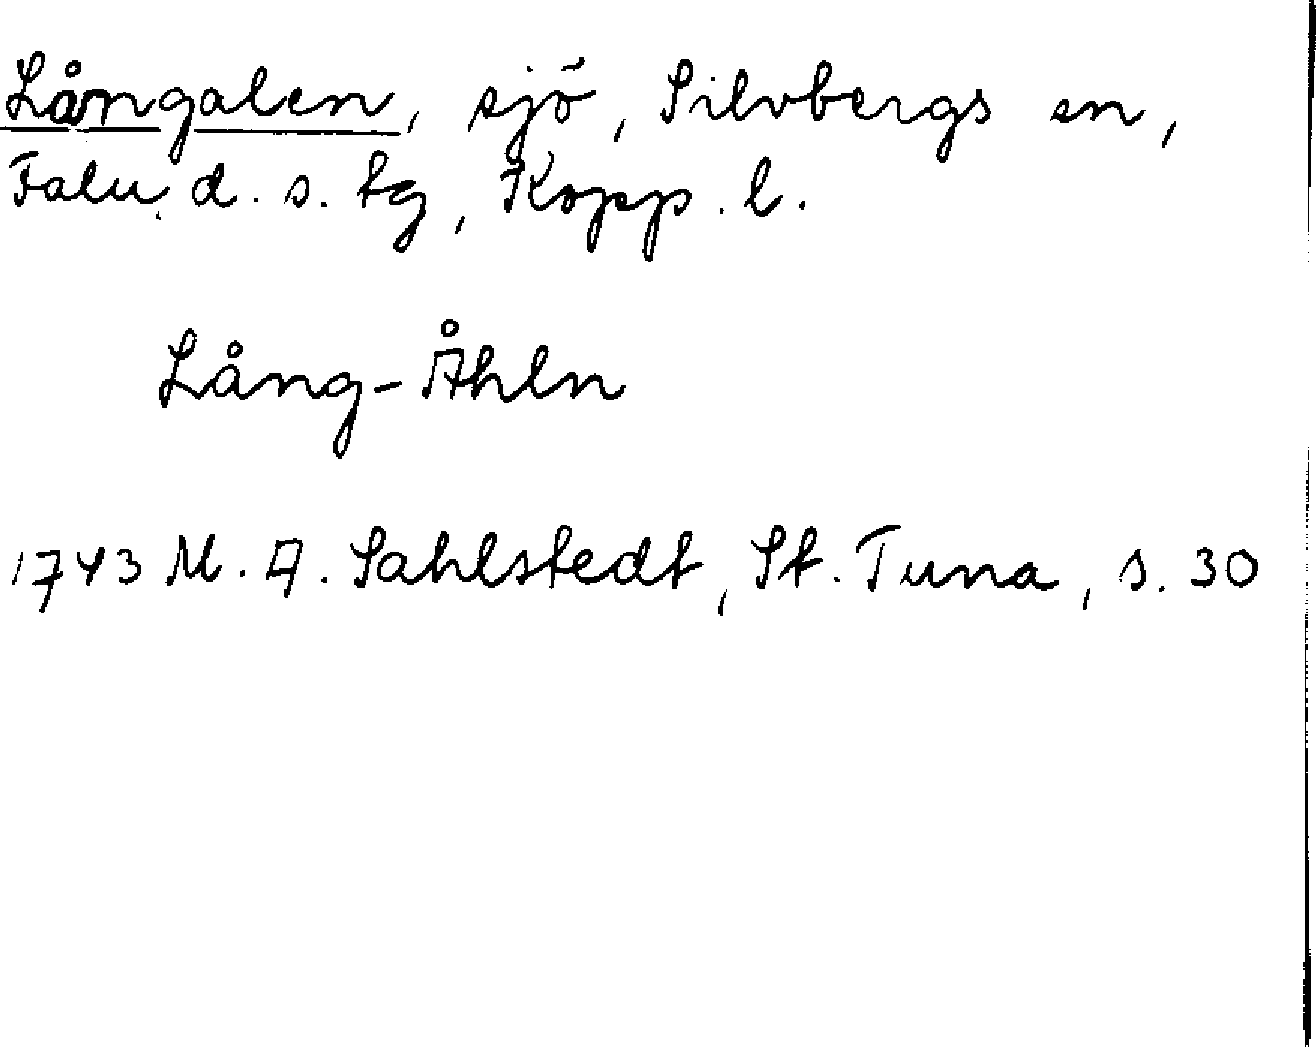 Långalen, sjö, Silvbergs sn,
Falu d. s. tg, Kopp. l.
Lång-Åhln
1743 M. A. Sahlstedt, St. Tuna, s. 30